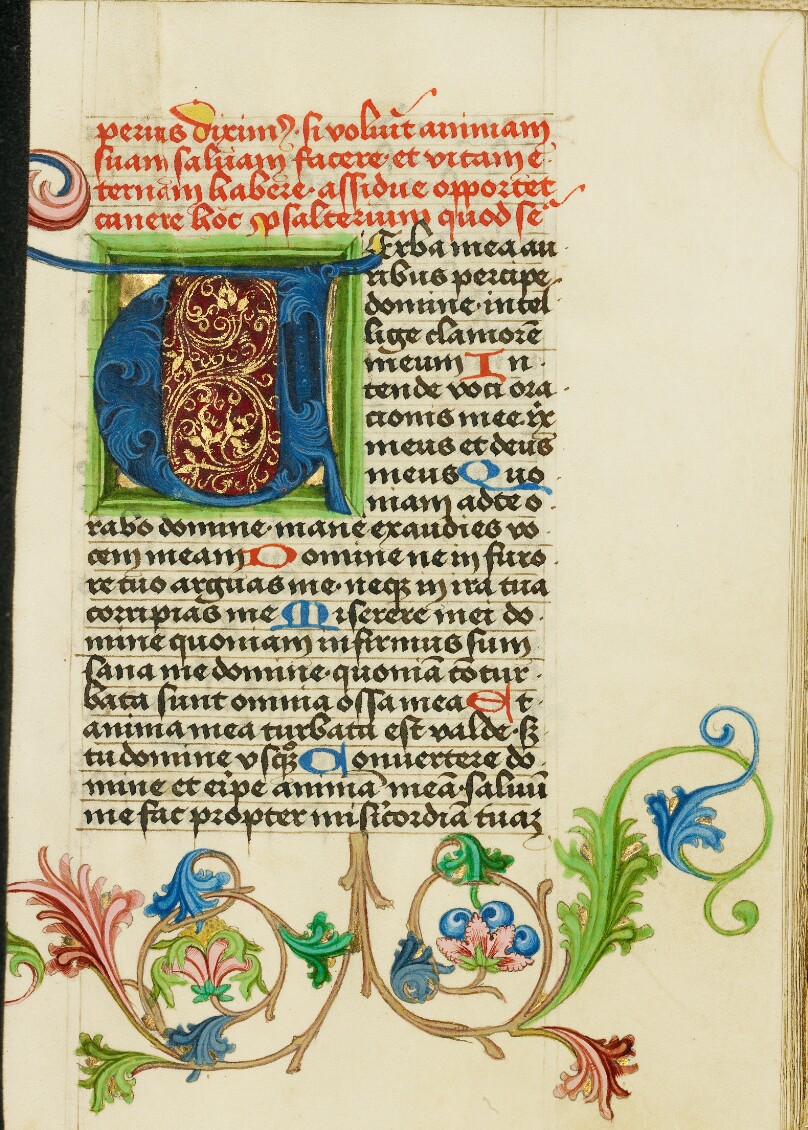 perius diximꝰ · si voluīt animam
suam saluam facere · et vitam e
ternam habere · assidue opportet
canere hoc psalterium quod seͣ
VErba mea au
ribus percipe
domine · intel
lige clamorē
meum In
tende voci ora
cionis mee · rex
meus et deus
meus Quo
niam ad te o
rabo domine · mane exaudies vo
cem meam Domine ne in furo
re tuo arguas me · neqꝫ in ira tua
corripias me Miserere mei do
mine quoniam infirmus sum
sana me domine · quoniā cōtur
bata sunt omnia ossa mea Et
anima mea turbata est valde · sꝫ
tu domine vsqꝫqͦ Conuertere do
mine et eripe animā meā · saluū
me fac propter misīcordiā tuaꝫ